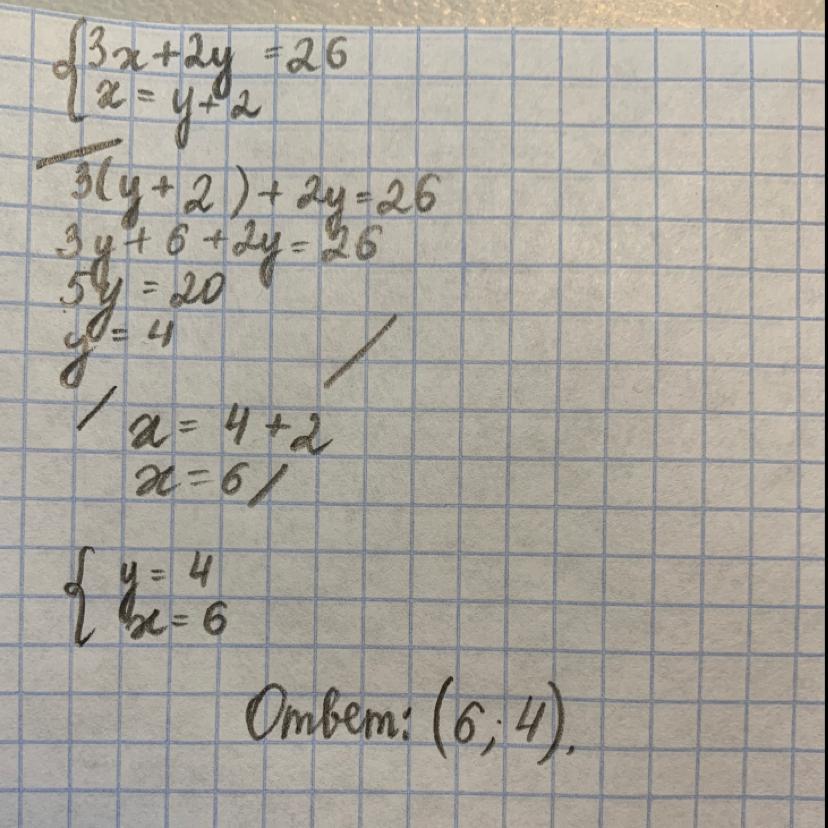 {3x+2y = 26
x = y+2
3(y+2)+2y=26
3y+6+2y=26
5y = 20
y = 4
x = 4+2
x = 6
{y = 4
x = 6
Ответ: (6; 4).